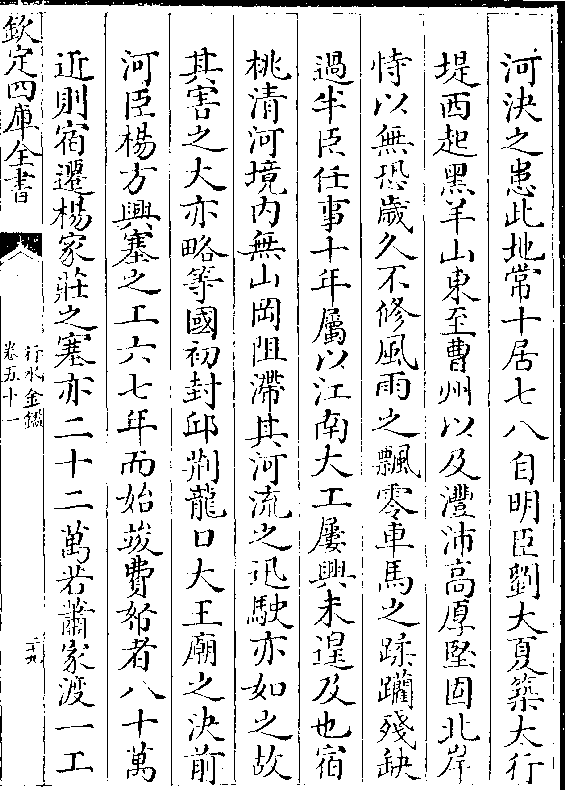 河決之患此地常十居七八自明臣劉大夏築太行
堤西起黑羊山東至曹州以及灃沛高厚堅固北岸
恃以無恐歲久不修風雨之飄零車馬之蹂躪殘缺
過半臣任事十年屬以江南大工屢興未遑及也宿
桃清河境内無山岡阻滯其河流之迅駛亦如之故
其害之大亦略等國初封邱荆龍口大王廟之決前
河臣楊方興塞之工六七年而始竣費帑者八十萬
近則宿遷楊家莊之塞亦二十二萬若蕭家渡一工
欽定四庫全書
行水金鑑
卷五十一
二十九